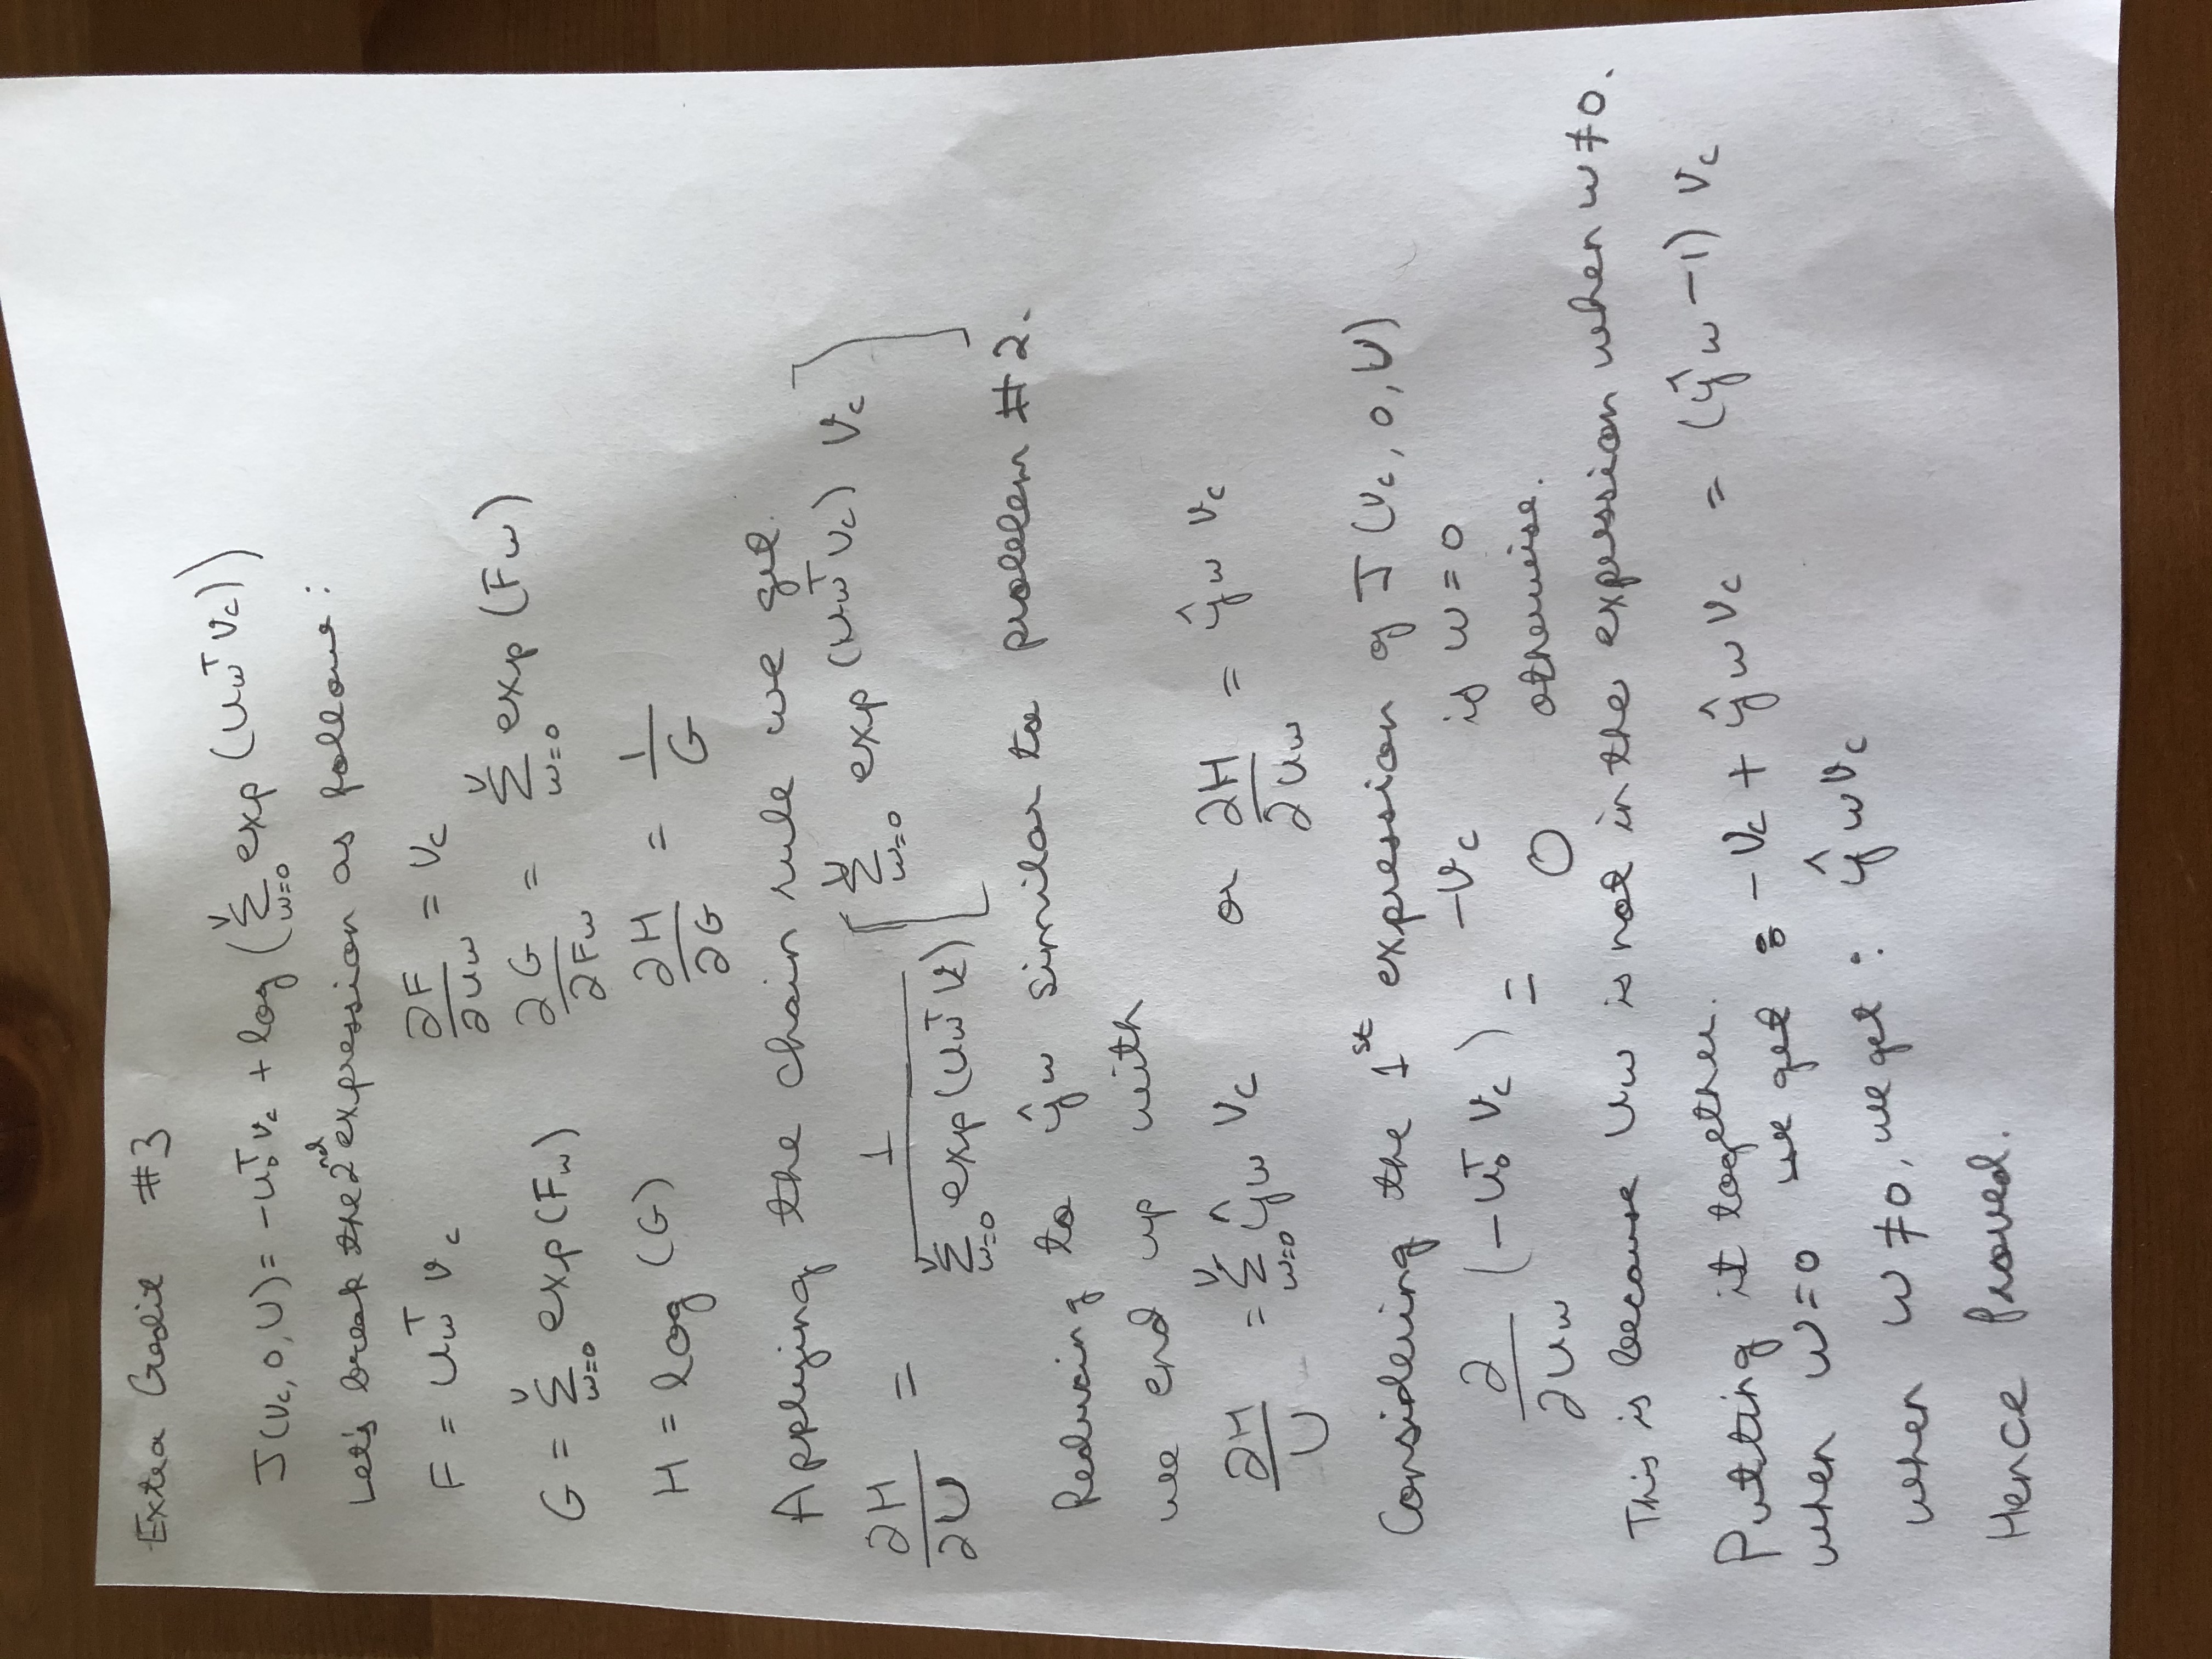 Extra Credit #3
J(v_c, o, U) = -u_o^T v_c + log (Σ_{w=0}^{V} exp (u_w^T v_c))
Let's break the 2nd expression as follows:
F = u_w^T v_c    ∂F/∂u_w = v_c
G = Σ_{w=0}^{V} exp(F_w)    ∂G/∂F_w = Σ_{w=0}^{V} exp (F_w)
H = log (G)    ∂H/∂G = 1/G
Applying the chain rule we get.
∂H/∂U = 1/(Σ_{w=0}^{V} exp(u_w^T v_c)) [Σ_{w=0}^{V} exp (u_w^T v_c) v_c]
Reducing to ŷ_w similar to problem #2.
we end up with
∂H/U = Σ_{w=0}^{V} ŷ_w v_c    or ∂H/∂u_w = ŷ_w v_c
Considering the 1st expression of J (v_c, o, U)
∂/∂u_w (-u_o^T v_c) = -v_c is w = o
0 otherwise.
This is because u_w is not in the expression when w ≠ o.
Putting it together.
when w = o we get : -v_c + ŷ_w v_c = (ŷ_w - 1) v_c
when w ≠ o, we get : ŷ_w v_c
Hence Proved.